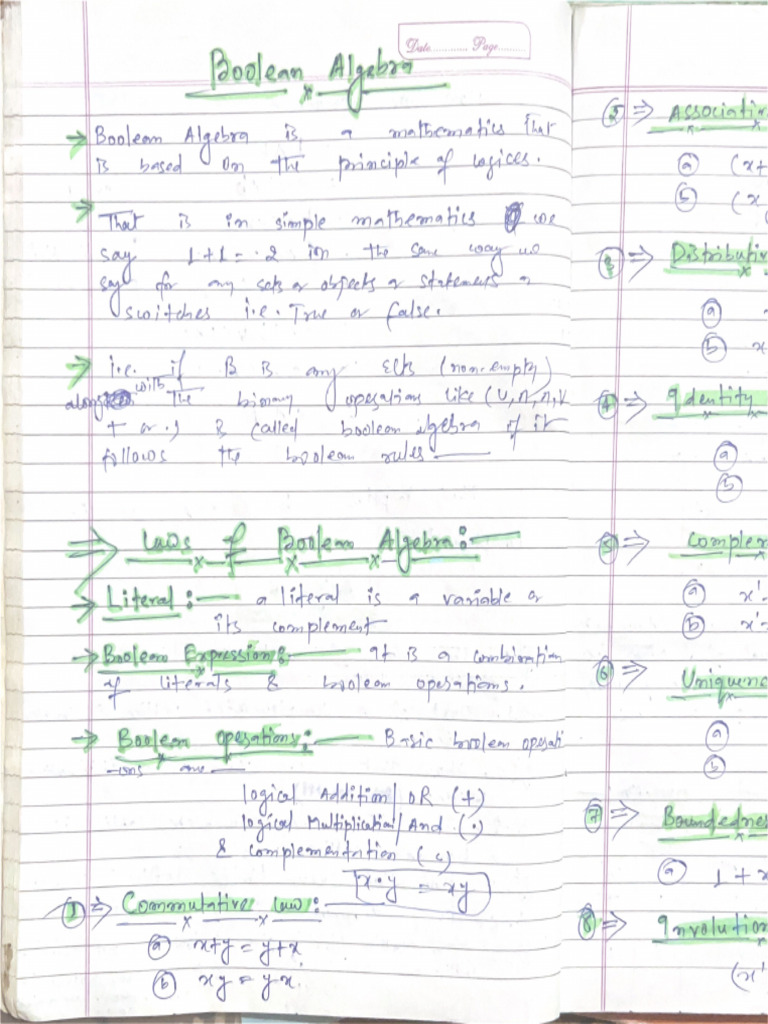 Date............ Page.........
Boolean Algebra
→ Boolean Algebra is a mathematics that
is based on the principle of logices.
→ That is in simple mathematics we
say 1+1=.2 in the same way we
say for any sets or objects or statements or
switches i.e. True or false.
→ i.e. if B is any sets (non-empty)
along with the binary operations like (∪,∩,∧,∨
+ or .) is called boolean algebra if it
follows the boolean rules
⇒ Laws of Boolean Algebra:-
→ Literal:- a literal is a variable or
its complement
→ Boolean Expression:- It is a combination
of literals & boolean operations.
→ Boolean operations:- Basic boolean operati
-ions are
logical Addition/OR (+)
logical Multiplication/And (.)
& complementrition (c)
x.y = xy
① ⇒ Commutative law:-
ⓐ x+y = y+x
ⓑ xy = yx.
② ⇒ Associativ
ⓐ (x+
ⓑ (x
③ ⇒ Distributiv
ⓐ
ⓑ x
④ ⇒ Identity
ⓐ
ⓑ
⑤ ⇒ Complem
ⓐ x'
ⓑ x'
⑥ ⇒ Uniquenes
ⓐ
ⓑ
⑦ ⇒ Boundednes
ⓐ 1 + x
⑧ ⇒ Involution
(x'